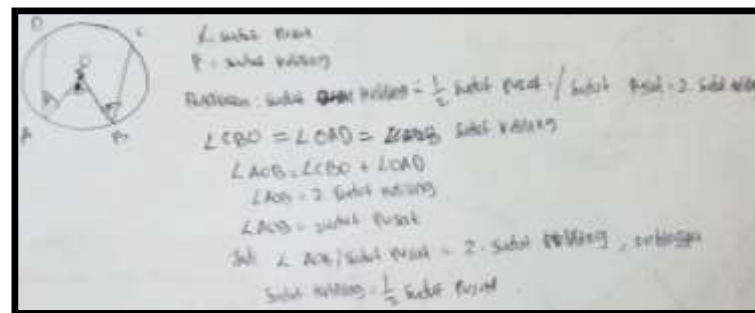 D
C
O
A
B
α = sudut pusat
β = sudut keliling
sudut keliling = 1/2 sudut pusat / sudut pusat = 2. sudut
∠CBO = ∠OAD = sudut keliling
∠AOB = ∠CBO + ∠OAD
∠AOB = 2 sudut keliling
∠AOB = sudut pusat
Jadi ∠AOB/sudut pusat = 2. sudut keliling, sehingga
sudut keliling = 1/2 sudut pusat.